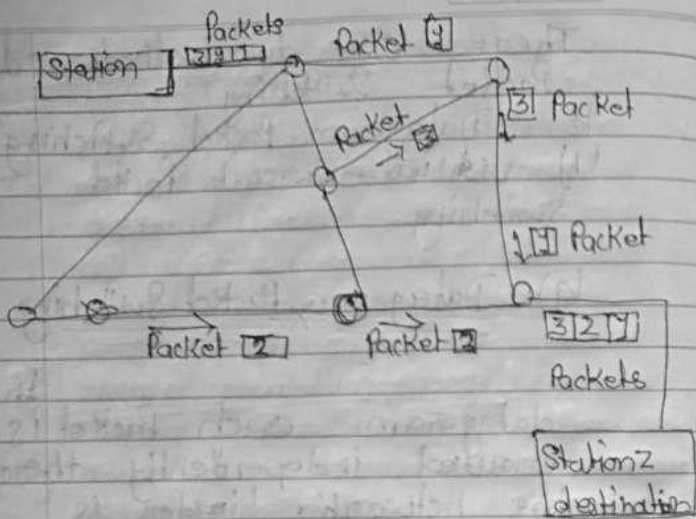 Packets
Station 3 2 1 Packet 1
3 Packet
Packet
→ 3
1 Packet
Packet 2 Packet 2 3 2 1
Packets
Station2
destination